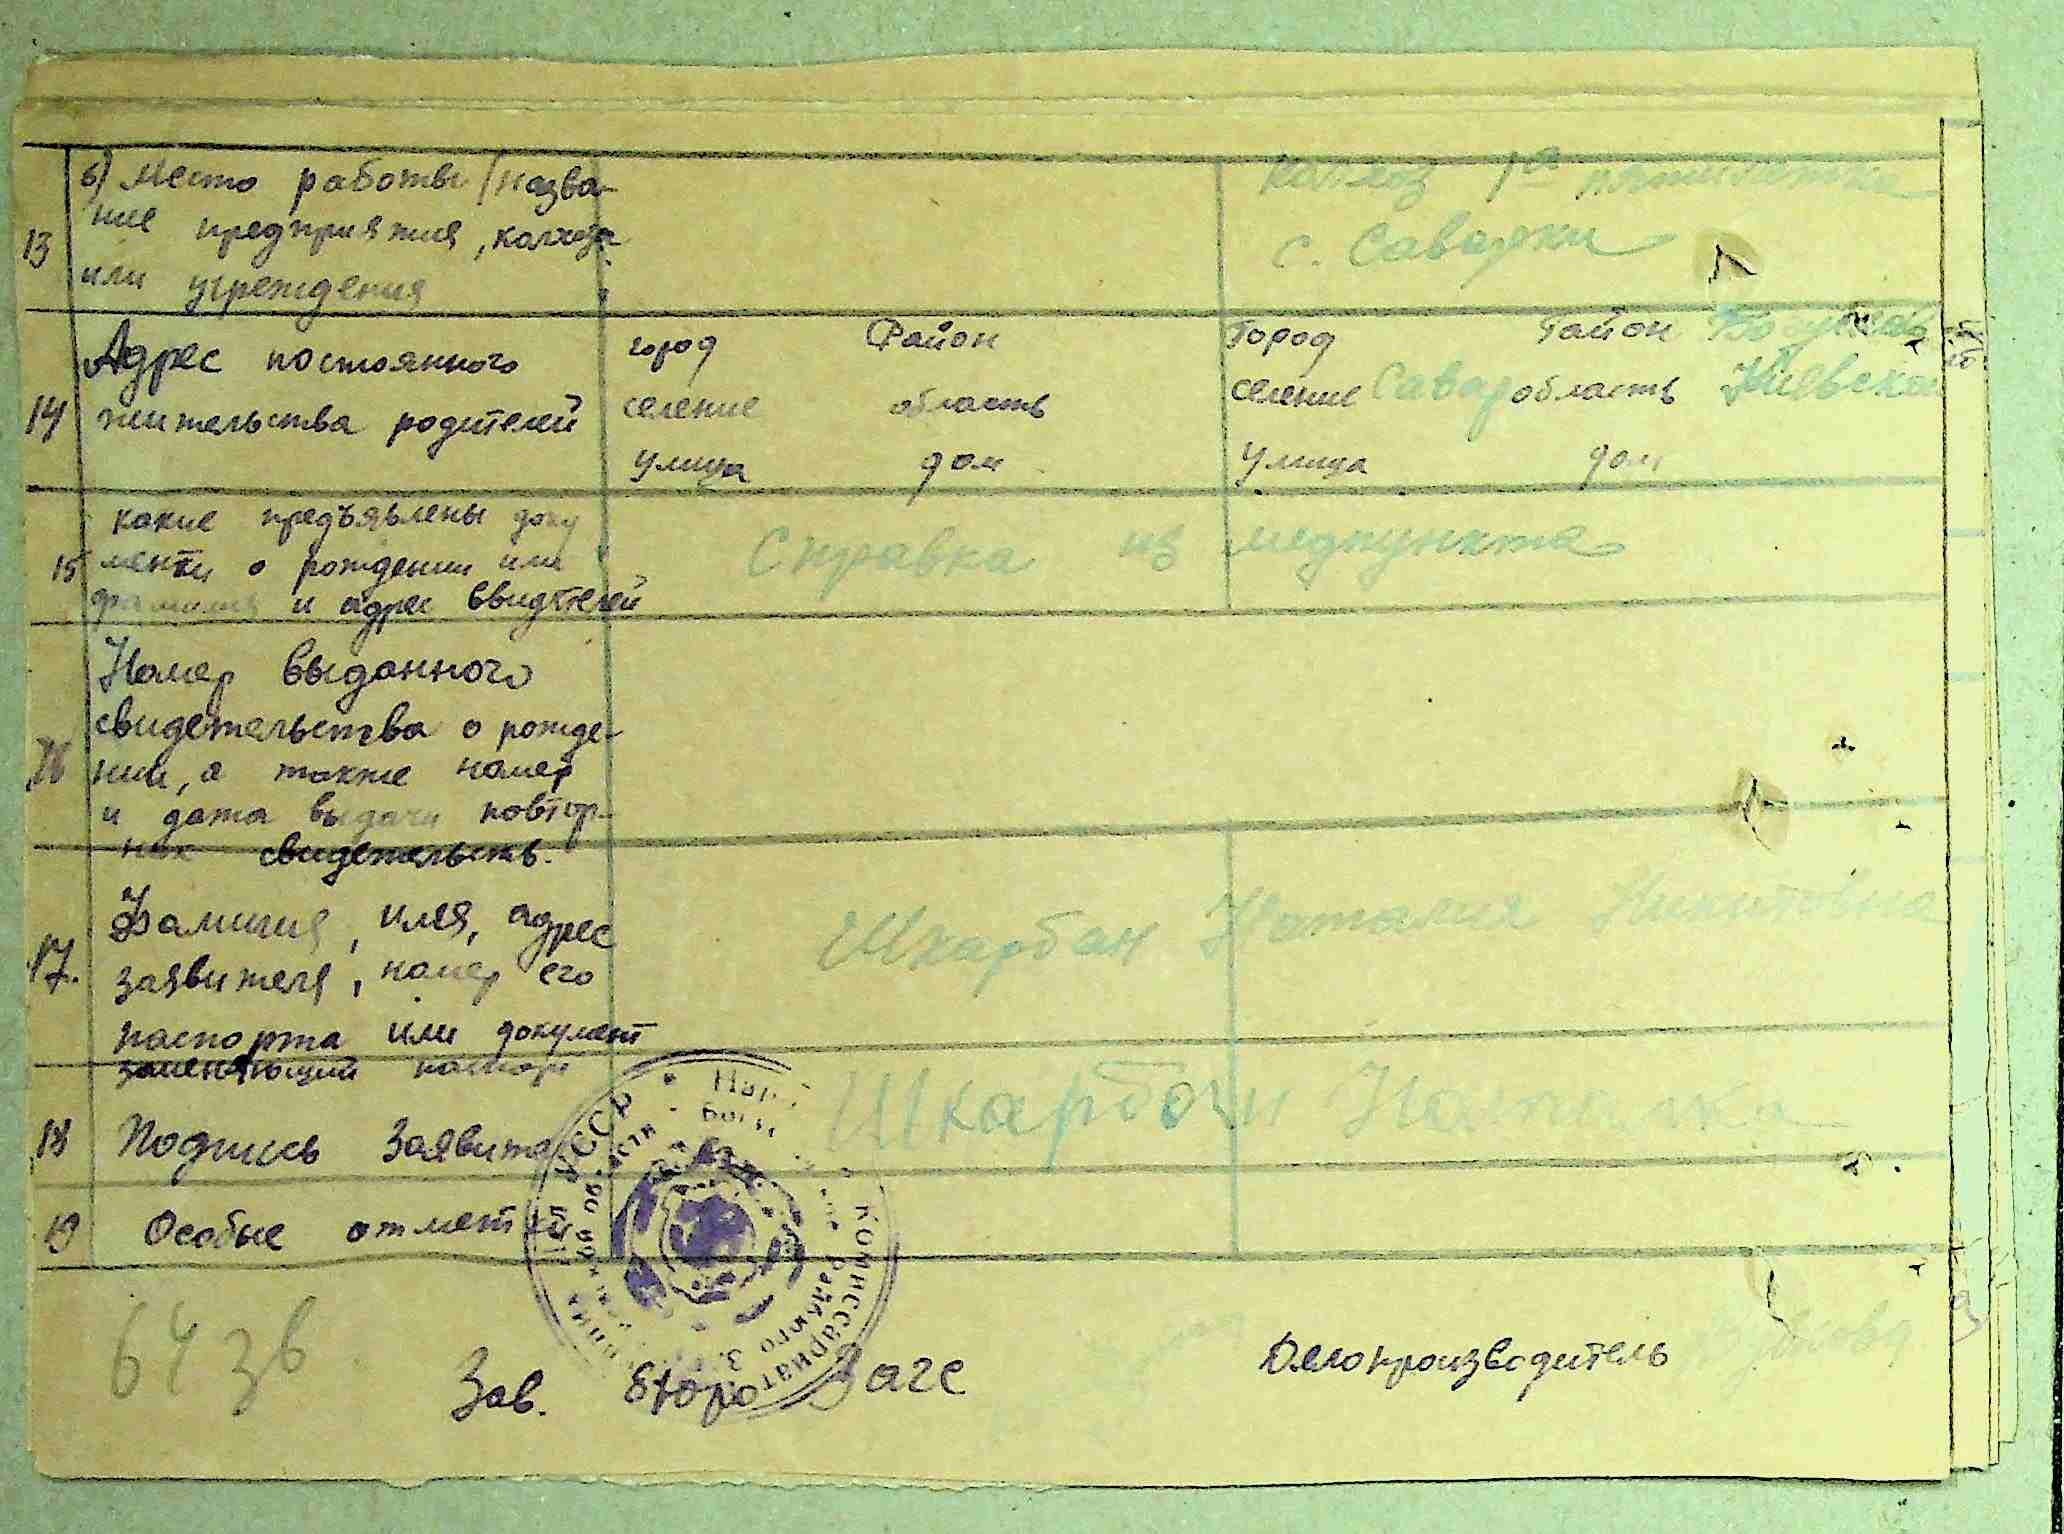 13
б) Место работы (назва-
ние предприятия, колхоза
или учреждения
колхоз 1я пятилетка
с. Саварки
14
Адрес постоянного
жительства родителей
город Район
селение область
улица дом
город Район Богуслав
селение Савар область Киевска
улица дом
15
какие предъявлены доку
менты о рождении или
фамилия и адрес ввидетелей
Справка из медпункта
16
Номер выданного
свидетельства о рожде-
нии, а также номер
и дата выдачи повтор-
ных свидетельств.
17.
Фамилия, имя, адрес
заявителя, номер его
паспорта или документ
заменяющий паспорт
Шкарбан Наталия Никитовна
18
Подпись Заявите
Шкарбан
19
Особые отметки
УССР
области
Комиссариат
районого
64 зв
Зав. Бюро Загс
Делопроизводитель